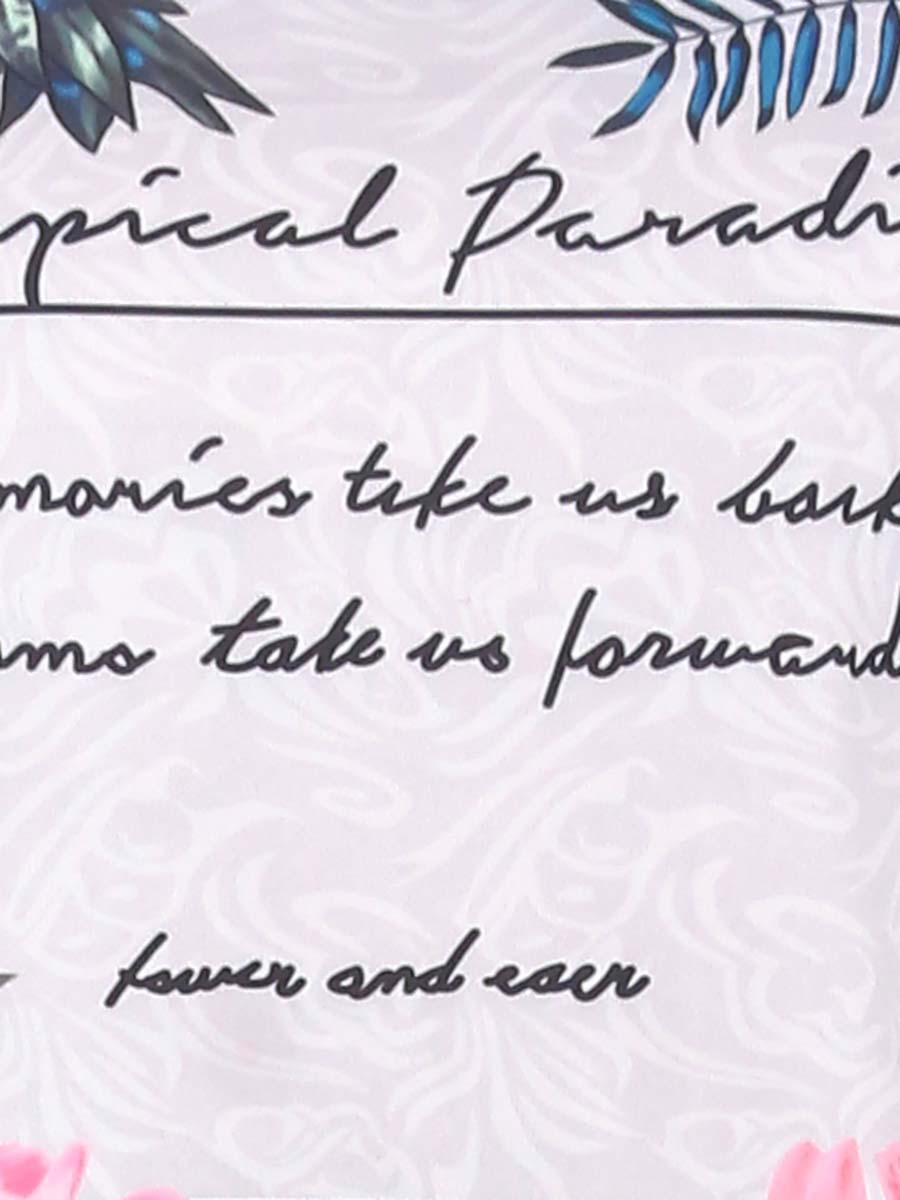 pical Paradi
mories take us back
ms take us forward
fower and eser